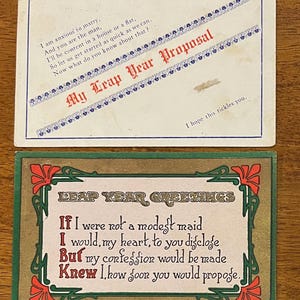 I am anxious to marry,
And you are the man,
I'll be content in a house or a flat,
So let us get started as quick as we can.
Now what do you know about that?
My Leap Year Proposal
I hope this tickles you.
LEAP YEAR GREETINGS
If I were not a modest maid
I would, my heart, to you disclose
But my confession would be made
Knew I, how soon you would propose.